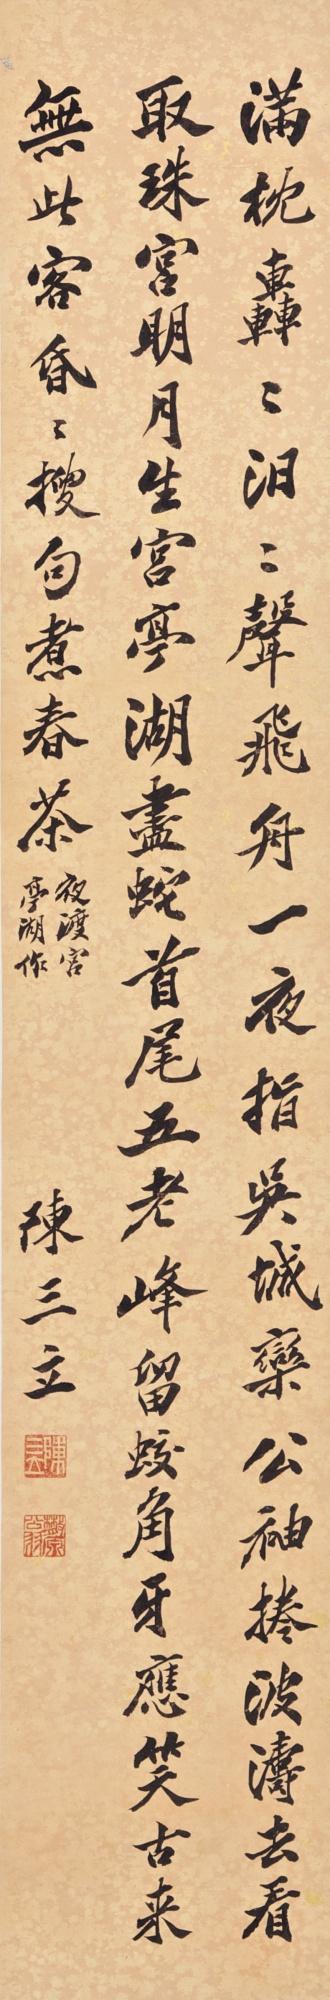 滿枕轟〻汨〻聲飛舟一夜指吳城欒公袖捲波濤去看
取珠宮明月生宮亭湖盡蛇首尾五老峰留蛟角牙應笑古来
無此客昏〻搜句煮春茶
夜渡宮
亭湖作
陳三立
陳三立
散原公羽